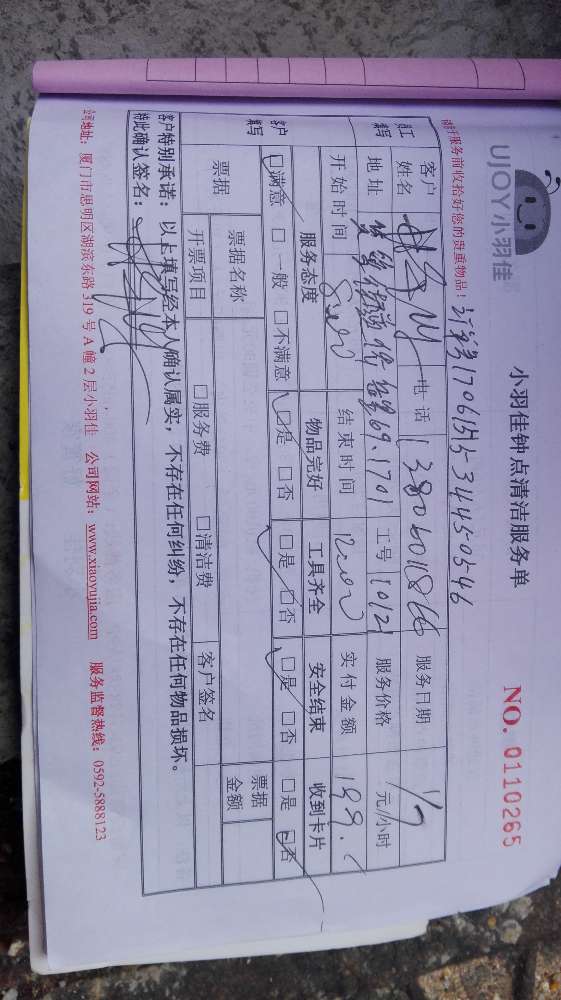 UJOY小羽佳
小羽佳钟点清洁服务单
NO. 0110265
服务前收拾好您的贵重物品！
员工填写
客户姓名
电话
服务日期
1/7
地址
工号 1012
服务价格
元/小时
开始时间 8:00
结束时间 12:00
实付金额
客户填写
服务态度
物品完好
工具齐全
安全结束
收到卡片
□满意 □一般 □不满意
□是 □否
□是 □否
□是 □否
□是 □否
票据
票据名称
客户签名
票据金额
开票项目
□服务费 □清洁费
客户特别承诺：以上填写经本人确认属实，不存在任何纠纷，不存在任何物品损坏。
特此确认签名：
公司地址：厦门市思明区湖滨东路 319 号 A 幢 2 层小羽佳 公司网站：www.xiaoyujia.com 服务监督热线：0592-5888123